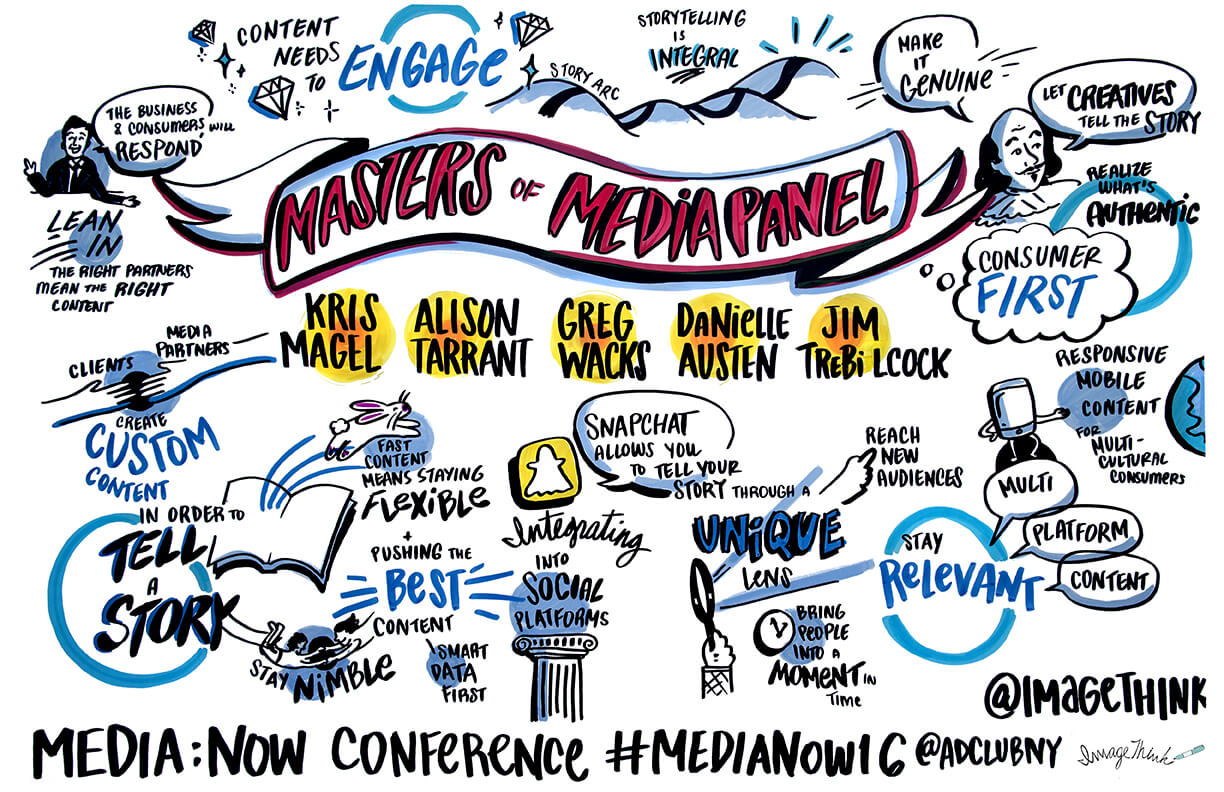 CONTENT
NEEDS
TO
ENGAGE
STORY ARC
STORYTELLING
IS
INTEGRAL
MAKE
IT
GENUINE
LET CREATIVES
TELL THE STORY
THE BUSINESS
& CONSUMERS WILL
RESPOND
MASTERS OF MEDIA PANEL
REALIZE
WHAT'S
AUTHENTIC
CONSUMER
FIRST
LEAN
IN
THE RIGHT PARTNERS
MEAN THE RIGHT
CONTENT
KRIS
MAGEL
ALISON
TARRANT
GREG
WACKS
DANIELLE
AUSTEN
JIM
TREBILCOCK
MEDIA
PARTNERS
CLIENTS
CREATE
CUSTOM
CONTENT
IN ORDER TO
TELL
A
STORY
FAST
CONTENT
MEANS STAYING
FLEXIBLE
+
PUSHING THE
BEST
CONTENT
SMART
DATA
FIRST
STAY NIMBLE
SNAPCHAT
ALLOWS YOU
TO TELL YOUR
STORY THROUGH A
UNIQUE
LENS
Integrating
INTO
SOCIAL
PLATFORMS
REACH
NEW
AUDIENCES
BRING
PEOPLE
INTO A
MOMENT IN
TIME
RESPONSIVE
MOBILE
CONTENT
FOR
MULTI-
CULTURAL
CONSUMERS
STAY
RELEVANT
MULTI
PLATFORM
CONTENT
@IMAGETHINK
MEDIA:NOW CONFERENCE #MEDIANOW16 @ADCLUBNY ImageThink